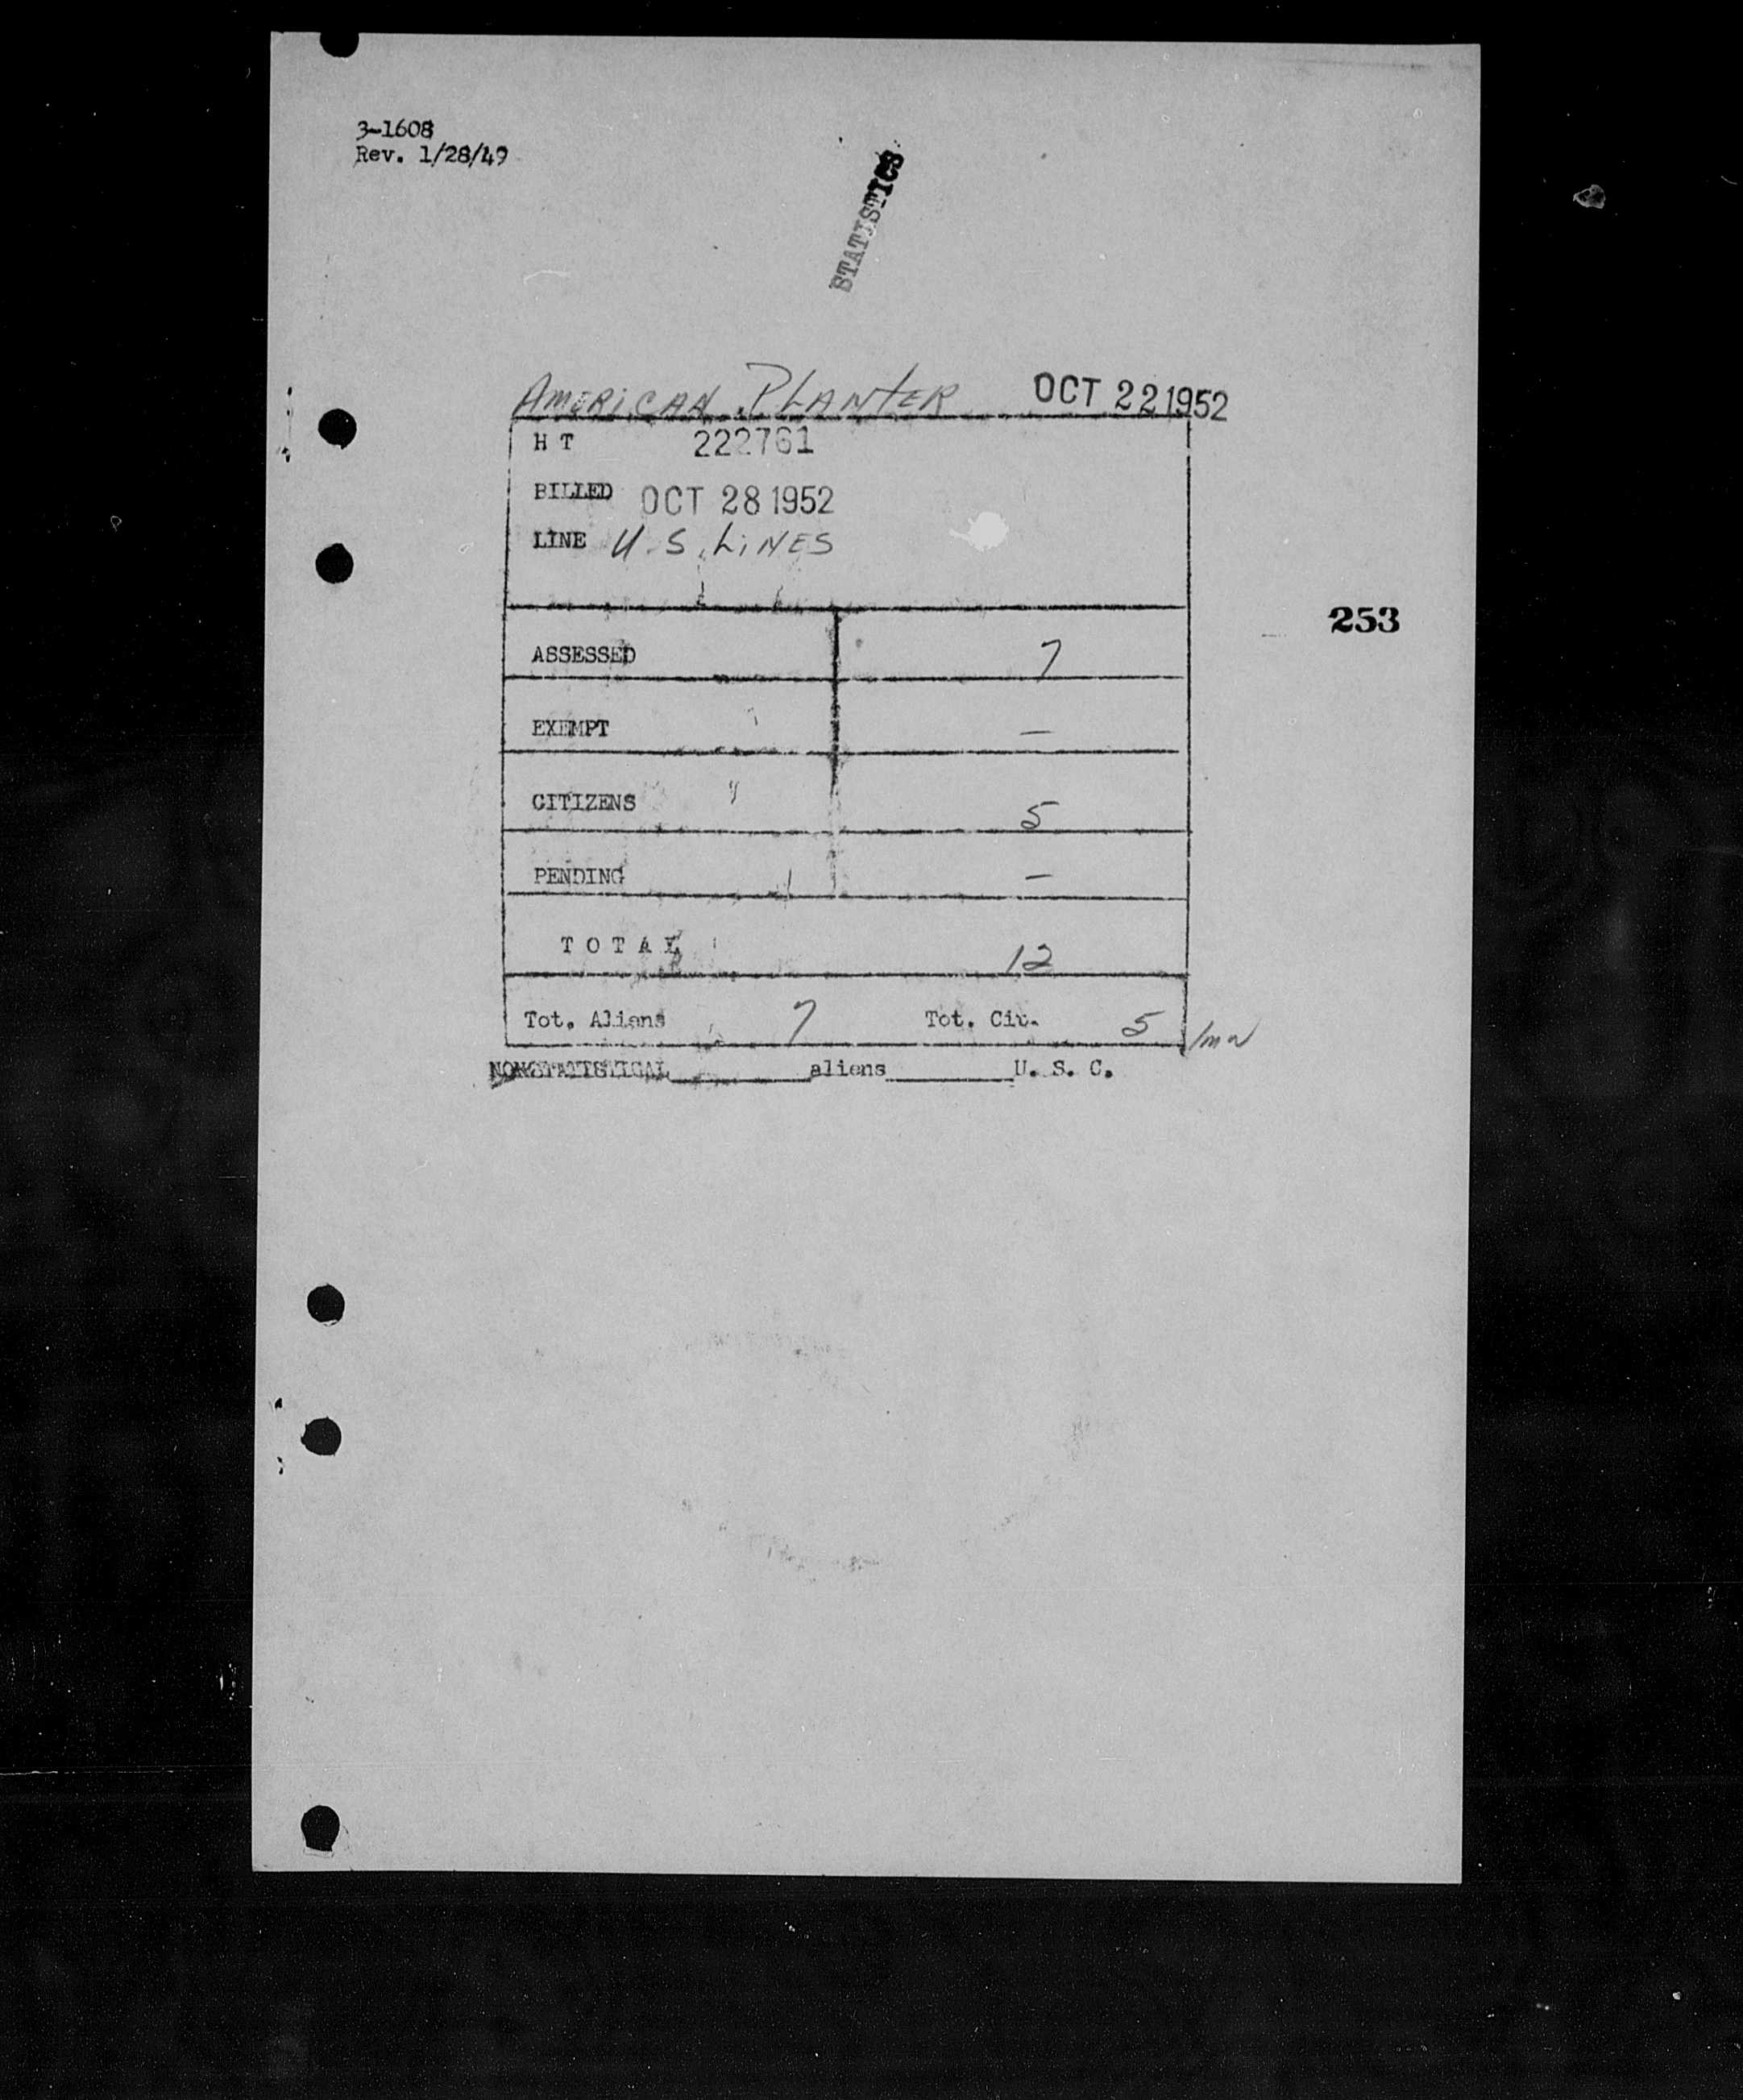 3-1608
Rev. 1/28/49
STATISTICS
AMERICAN PLANTER OCT 22 1952
H T 222761
BILLED OCT 28 1952
LINE U.S. LINES
253
ASSESSED 7
EXEMPT —
CITIZENS 5
PENDING —
T O T A L 12
Tot. Aliens 7 Tot. Cit. 5
NONSTATISTICAL aliens U. S. C.